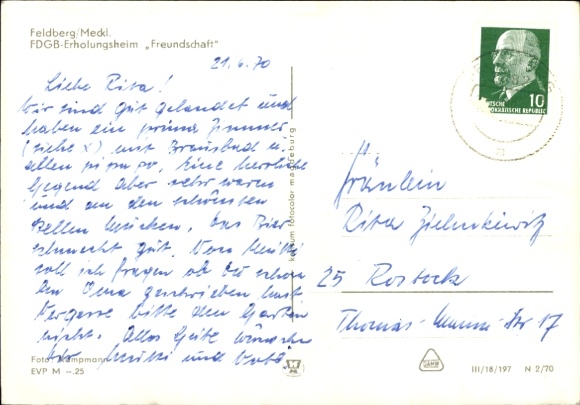 Feldberg/Meckl.
FDGB-Erholungsheim „Freundschaft"
21.6.70
Liebe Rita!
Wir sind gut gelandet und
haben ein prima Zimmer
(siehe X) mit Brausbad u.
allen pi pa po. Eine herrliche
Gegend aber sehr warm
und an den schönsten
Stellen Mücken. Das Bier
schmeckt gut. Von Mutti
soll ich fragen ob Du schon
den geschrieben hast.
Vergesse bitte den Garten
nicht. Alles Gute wünschen
Dir Mutti und Vati.
Foto: Kampmann
EVP M –.25
magdeburg
10
DEUTSCHE
DEMOKRATISCHE REPUBLIK
Fräulein
Rita Zielenkiewitz
25 Rostock
Thomas-Mann-Str 17
III/18/197 N 2/70